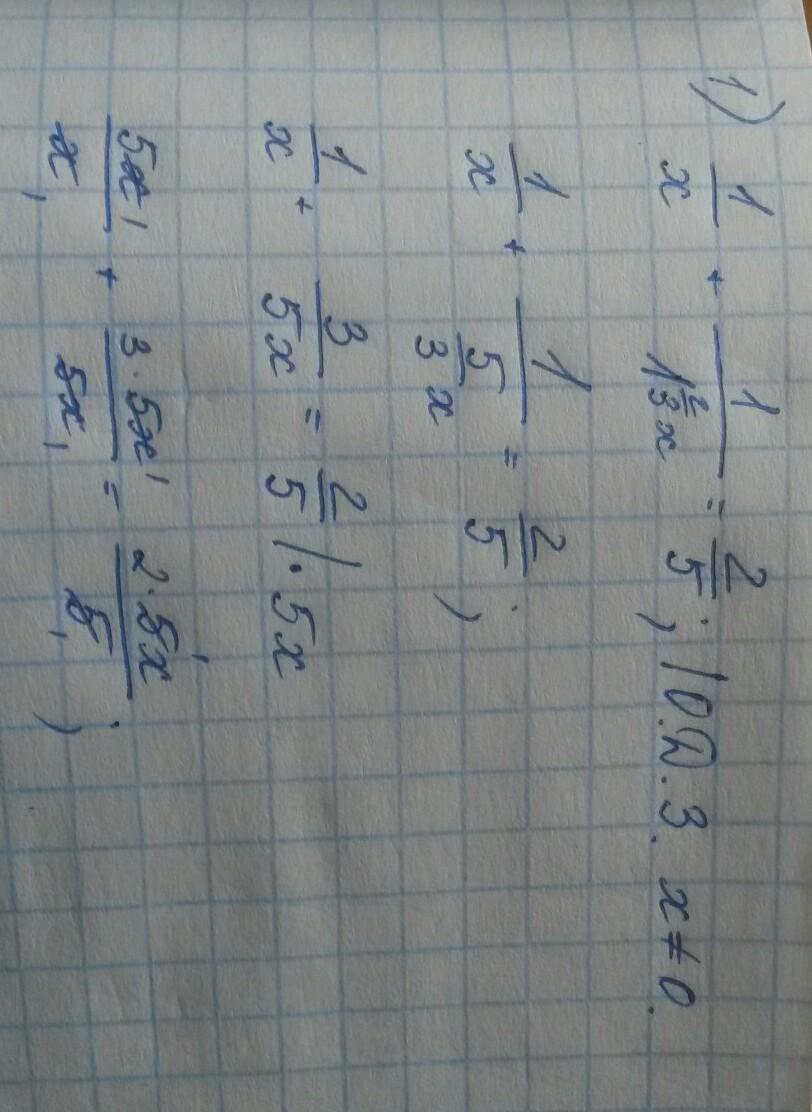 1) 1/x + 1/(1 2/3 x) = 2/5; | О.Д.З. x ≠ 0.
1/x + 1/(5/3 x) = 2/5;
1/x + 3/5x = 2/5 | · 5x
5x/x + 3 · 5x/5x = 2 · 5x/5;